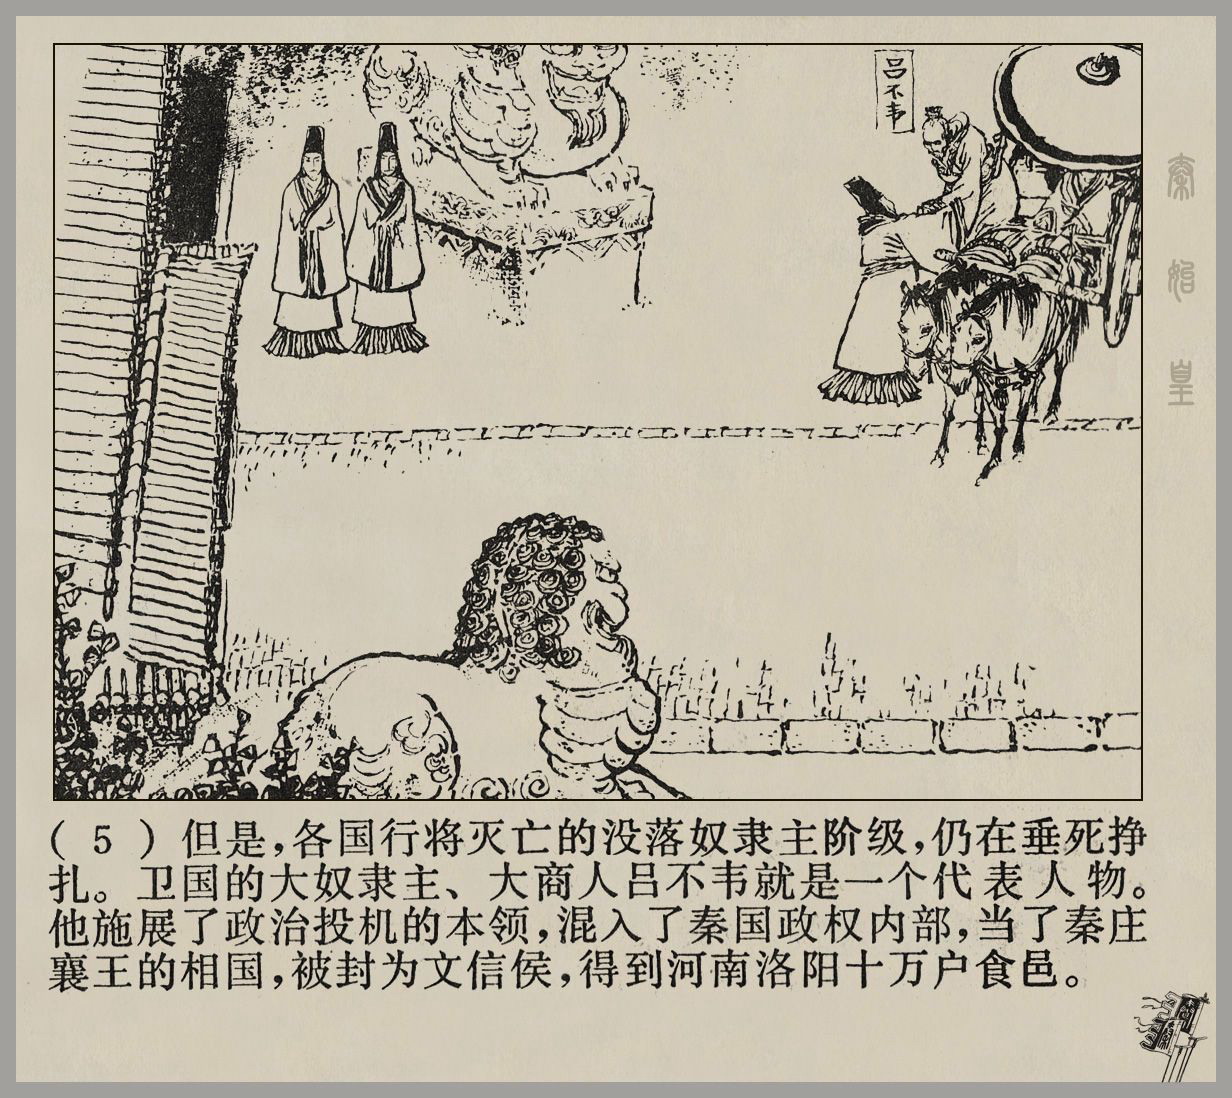 吕不韦
秦始皇
（5）但是，各国行将灭亡的没落奴隶主阶级，仍在垂死挣
扎。卫国的大奴隶主、大商人吕不韦就是一个代表人物。
他施展了政治投机的本领，混入了秦国政权内部，当了秦庄
襄王的相国，被封为文信侯，得到河南洛阳十万户食邑。